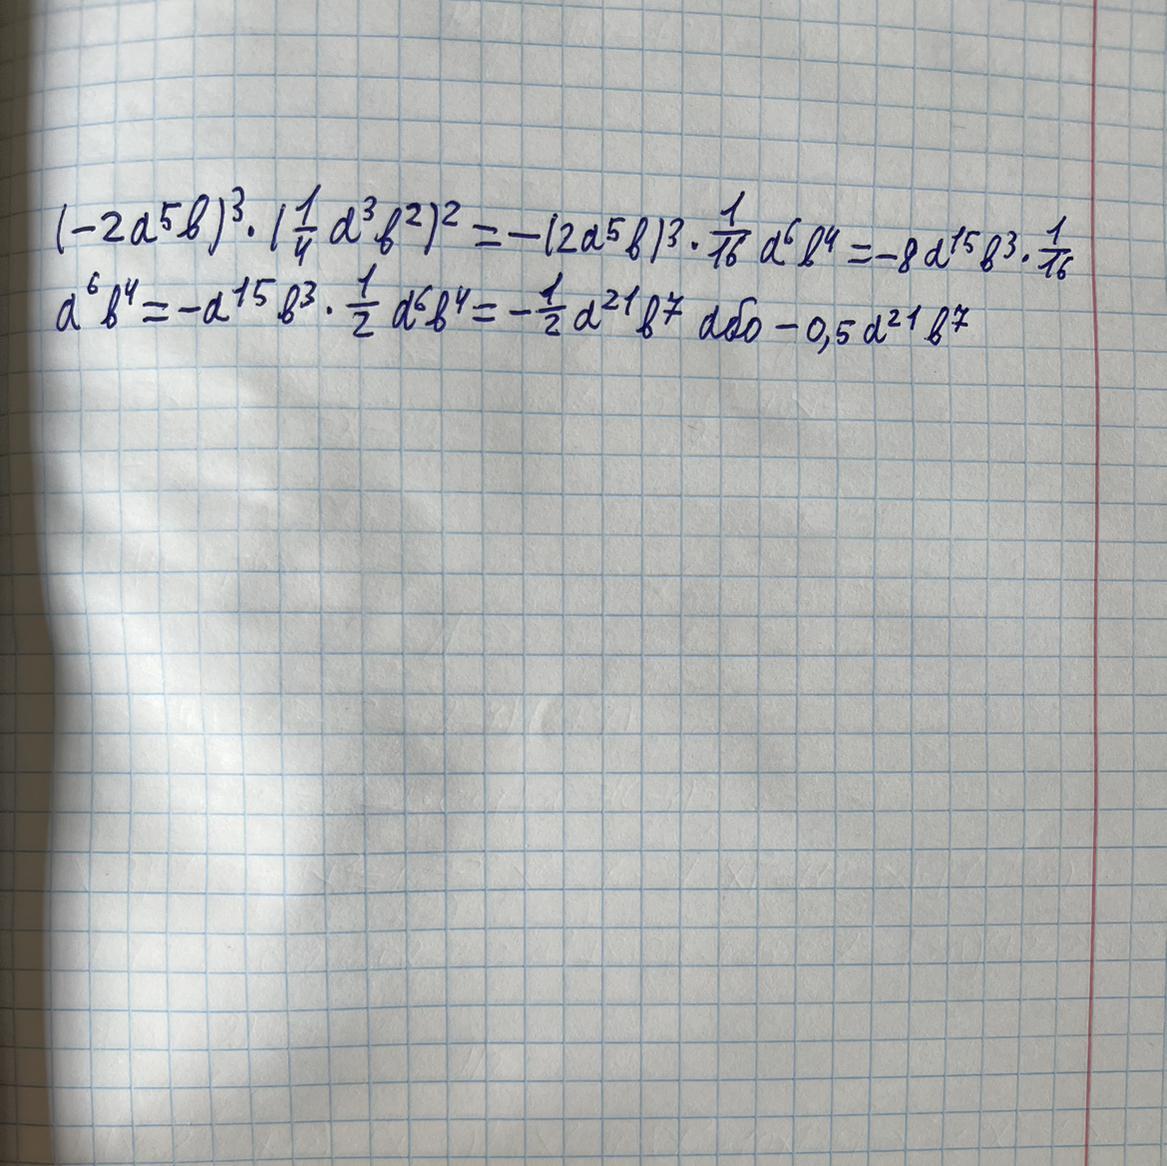 (-2a⁵b)³·(1/4 a³b²)² = -(2a⁵b)³·1/16 a⁶b⁴ = -8a¹⁵b³·1/16
a⁶b⁴ = -a¹⁵b³·1/2 a⁶b⁴ = -1/2 a²¹b⁷ або -0,5a²¹b⁷